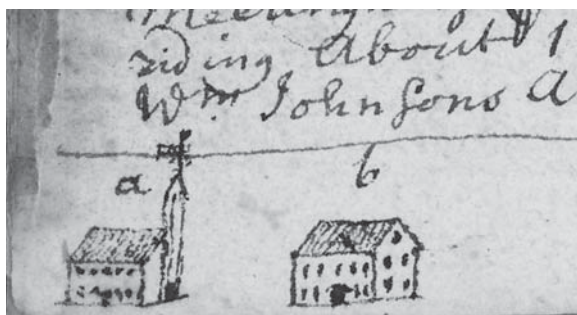 riding About
Wm Johnsons A
a b